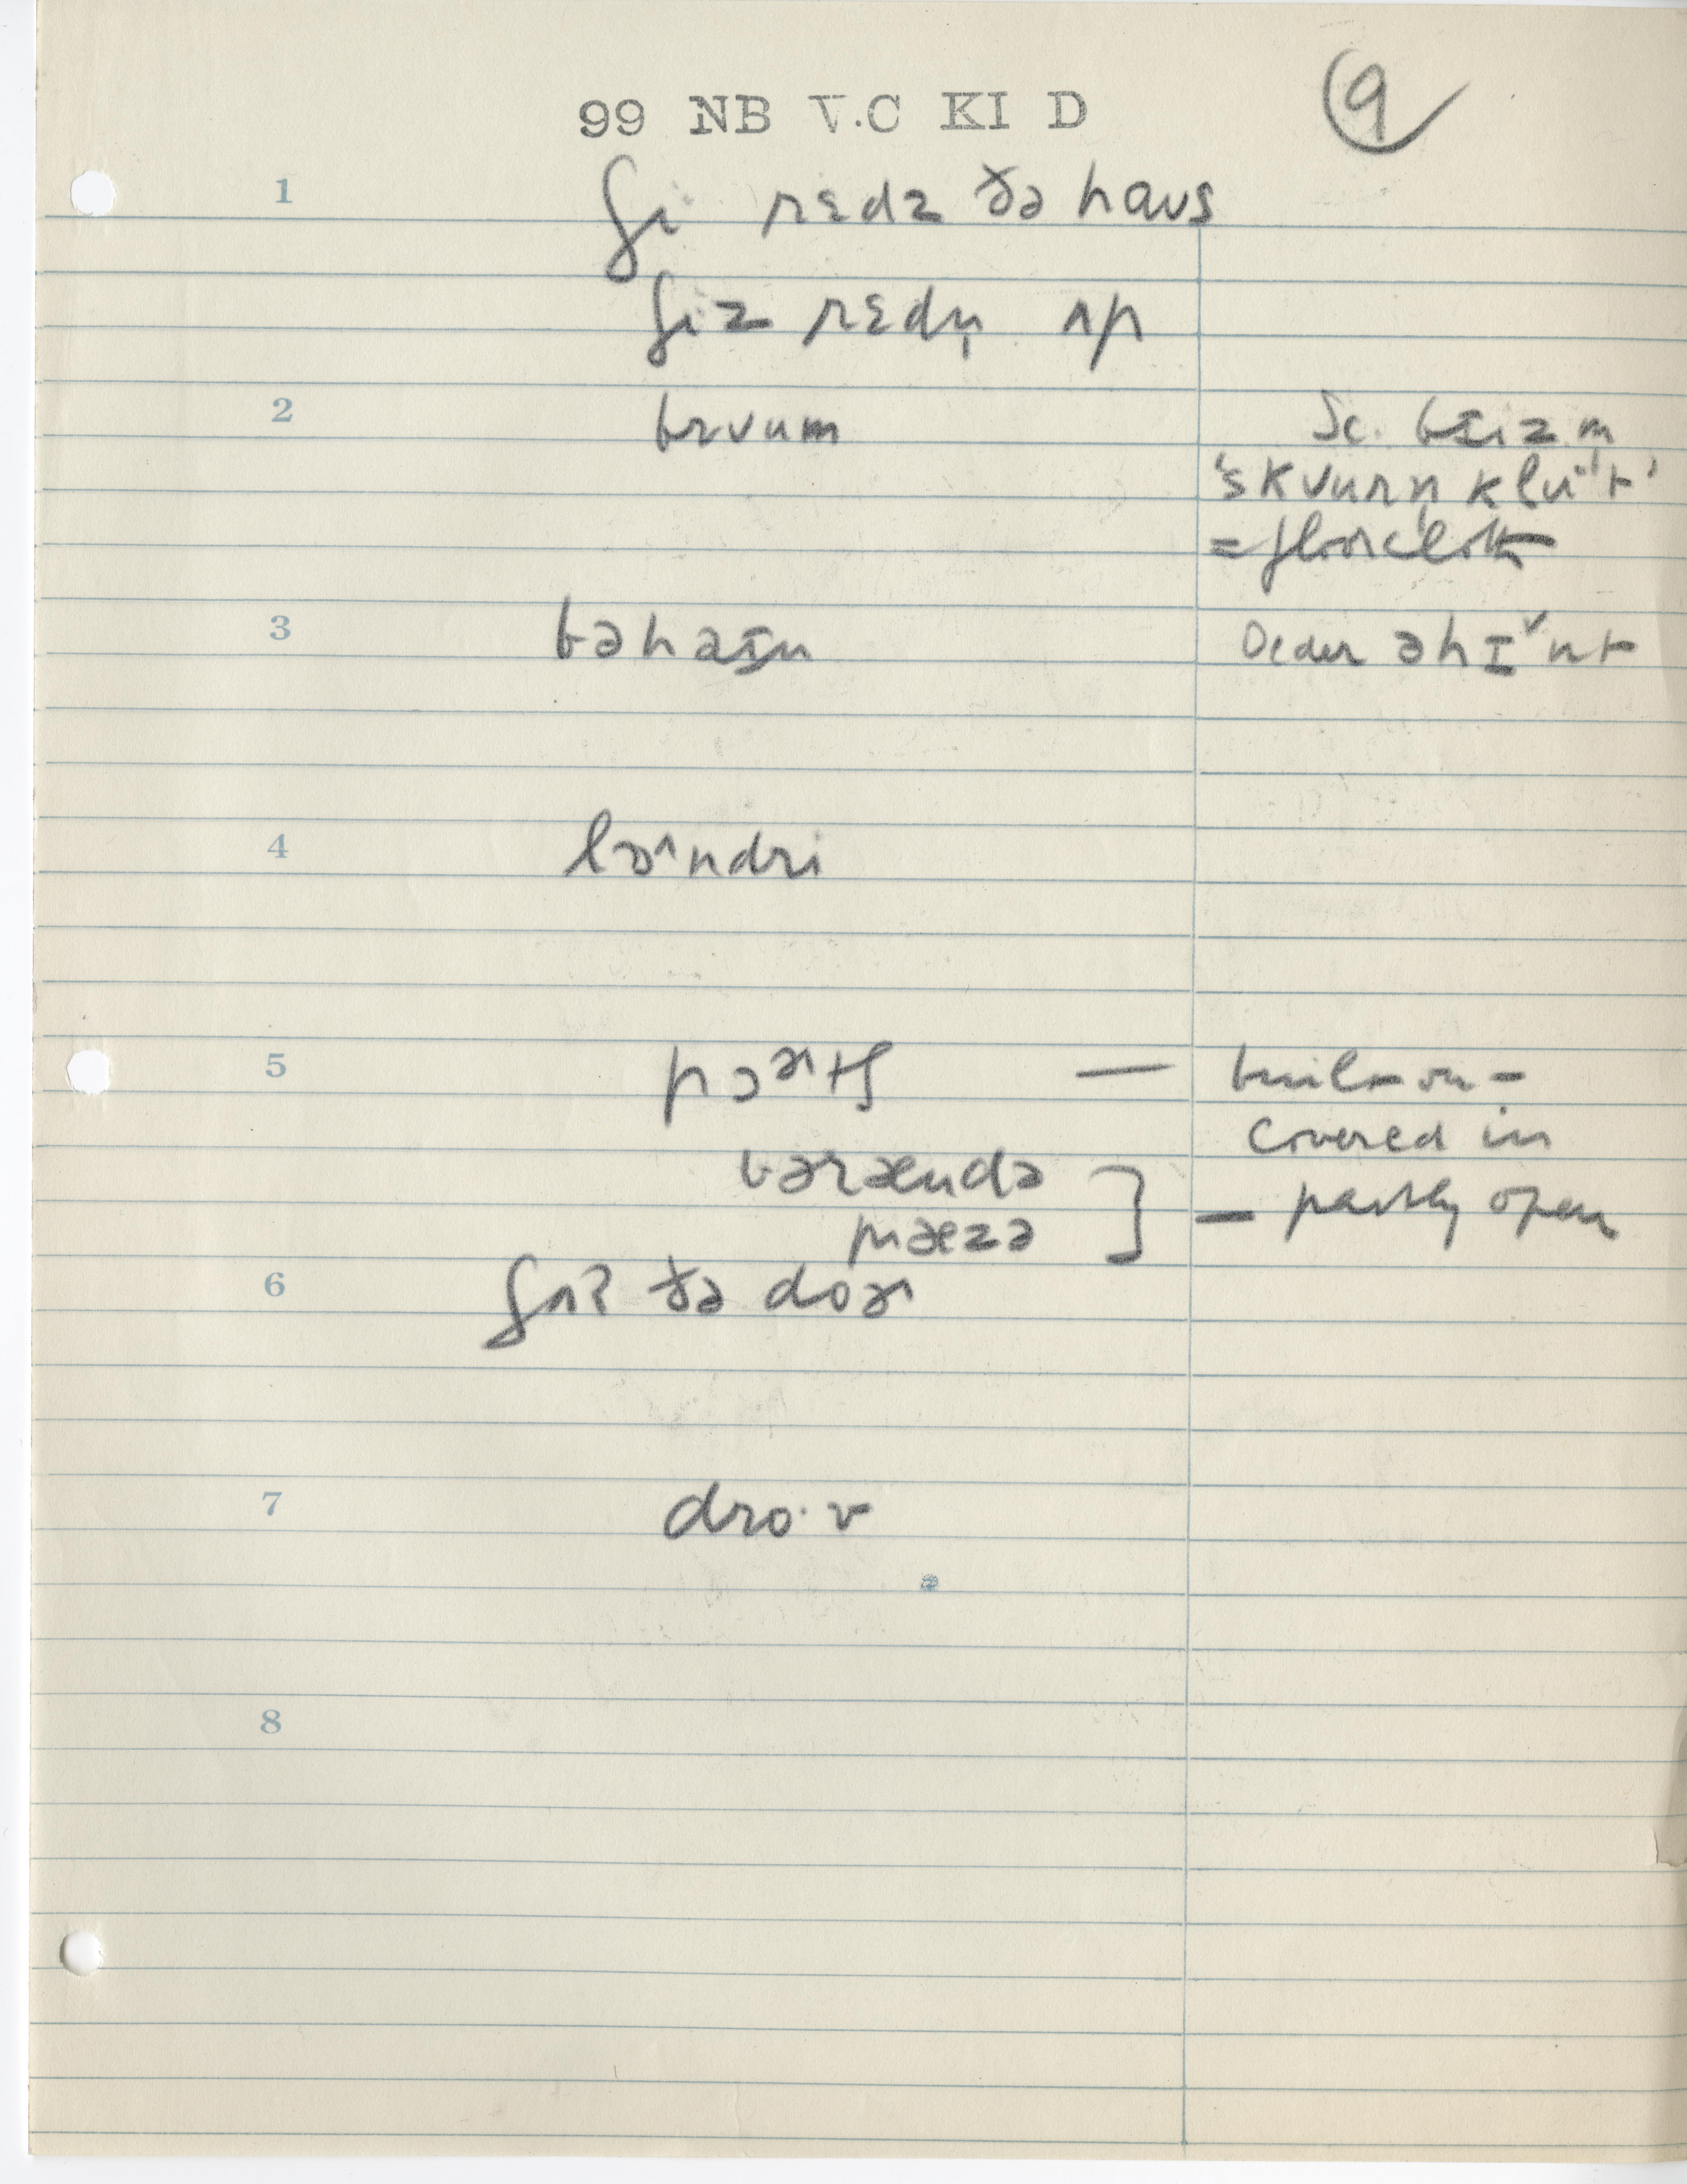 99 NB V.C KI D
9
1 ʃi rɛdz ðə haʊs
ʃiz rɛdn̩ ʌp
2 brʊum Sc. bɪzm̩
skʊurn̩ klut
= floorcloth
3 bəhaɪn Older əhɪˇnt
4 lɔ^ndri
5 pɔɚtʃ — built-on -
covered in
vərændə
— partly open
piæzə
6 ʃʌʔ ðə doɚ
7 dro·ɚ
8